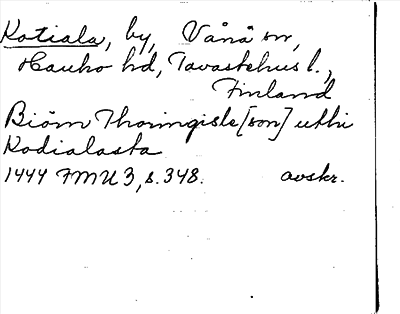 Kotiala, by, Vånå sn,
Hauho hd, Tavastehus l.,
Finland
Biörn Thorringisle[son] uthi
Kodialasta
1444 FMU 3, s. 348. avskr.